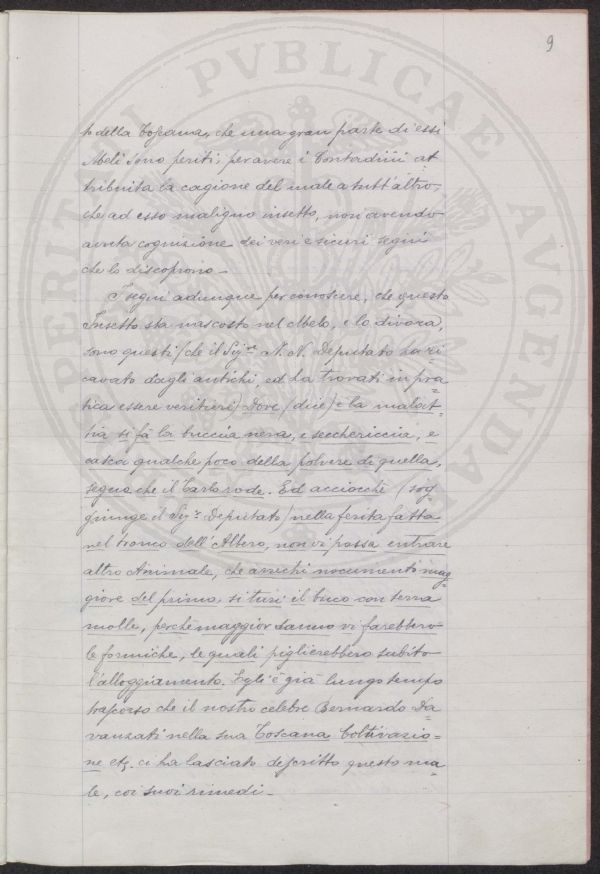 9
p della Toscana, che una gran parte di essi
Meli sono periti, per avere i Contadini at=
tribuita la cagione del male a tutt'altro,
che ad esso maligno insetto, non avendo
avuta cognizione dei veri e sicuri segni
che lo discoprono.
I segni adunque per conoscere, che questo
Insetto sta nascosto nel Melo, e lo divora,
sono questi (che il Sigre N. N. Deputato ha ri=
cavato dagli antichi, ed ha trovati in pra=
tica essere veritieri) Dove (dice) = la malat=
tia si fà la buccia nera, e seccherìccia, e
casca qualche poco della polvere di quella,
segno che il Tarlo rode. Ed acciocchè (sog=
giunge il Sigr Deputato) nella ferita fatta
nel tronco dell'Albero, non vi possa entrare
altro Animale, che arrechi nocumento mag=
giore del primo, si turi il buco con terra
molle, perchè maggior danno vi farebbero
le formiche, le quali piglierebbero subito
l'alloggiamento. Egli è già lungo tempo
trascorso che il nostro celebre Bernardo Da=
vanzati nella sua Toscana Coltivazio=
ne etc. ci ha lasciato descritto questo ma=
le, coi suoi rimedi.
PERITATI PVBLICAE AVGENDAE